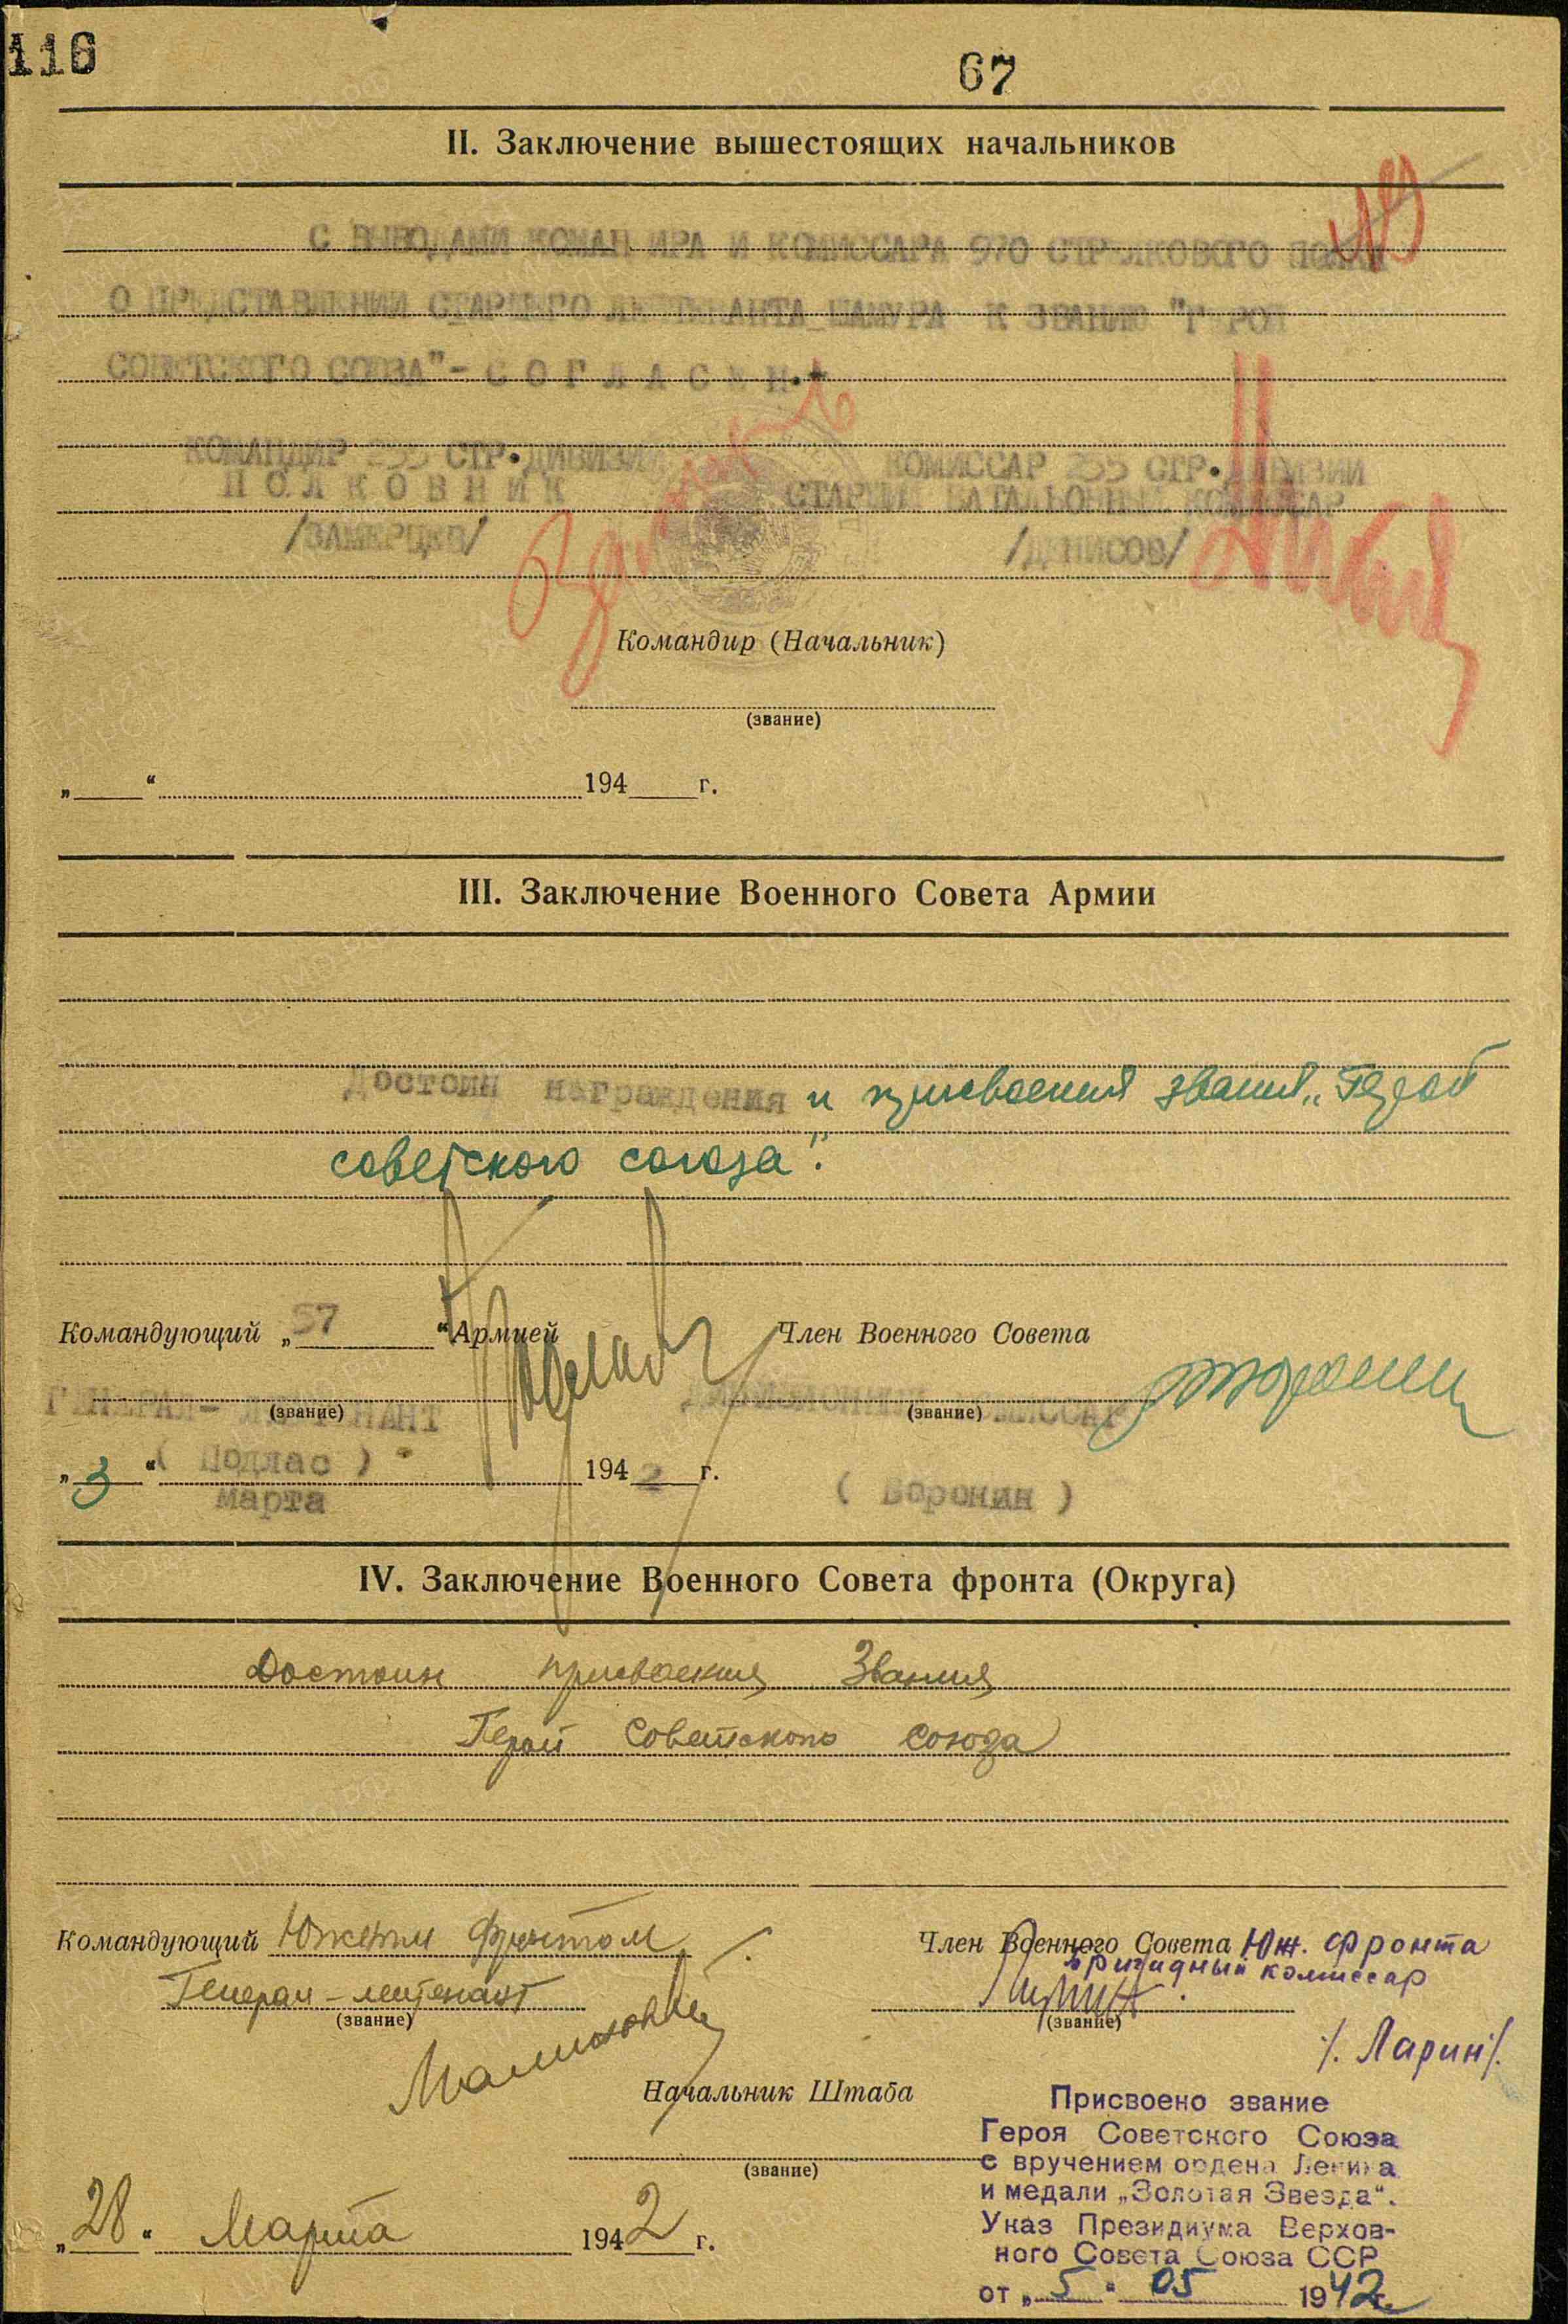 116
67
II. Заключение вышестоящих начальников
С ВЫВОДАМИ КОМАНДИРА И КОМИССАРА 970 СТРЕЛКОВОГО ПОЛКА
О ПРЕДСТАВЛЕНИИ СТАРШЕГО ЛЕЙТЕНАНТА ШАМУРА К ЗВАНИЮ "ГЕРОЙ
СОВЕТСКОГО СОЮЗА"- С О Г Л А С Е Н.
КОМАНДИР 255 СТР.ДИВИЗИИ КОМИССАР 255 СТР.ДИВИЗИИ
П О Л К О В Н И К СТАРШИЙ БАТАЛЬОННЫЙ КОМИССАР
/ЗАМЕРЦЕВ/ /ДЕНИСОВ/
Командир (Начальник)
(звание)
„ “ 194 г.
III. Заключение Военного Совета Армии
Достоин награждения и присвоения звания „Герой
советского союза".
Командующий „57 “ Армией Член Военного Совета
ГЕНЕРАЛ-ЛЕЙТЕНАНТ ДИВИЗИОННЫЙ КОМИССАР
(звание) (звание)
( Подлас )
„3“ марта 1942 г. ( Воронин )
IV. Заключение Военного Совета фронта (Округа)
Достоин присвоения Звания
Герой Советского Союза
Командующий Южным фронтом Член Военного Совета Юж. фронта
Генерал-лейтенант бригадный комиссар
(звание) (звание)
Малиновский /. Ларин/.
Начальник Штаба
(звание)
„28“ Марта 1942 г.
Присвоено звание
Героя Советского Союза
с вручением ордена Ленина
и медали „Золотая Звезда“.
Указ Президиума Верхов-
ного Совета Союза ССР
от „5“ 05 1942г.